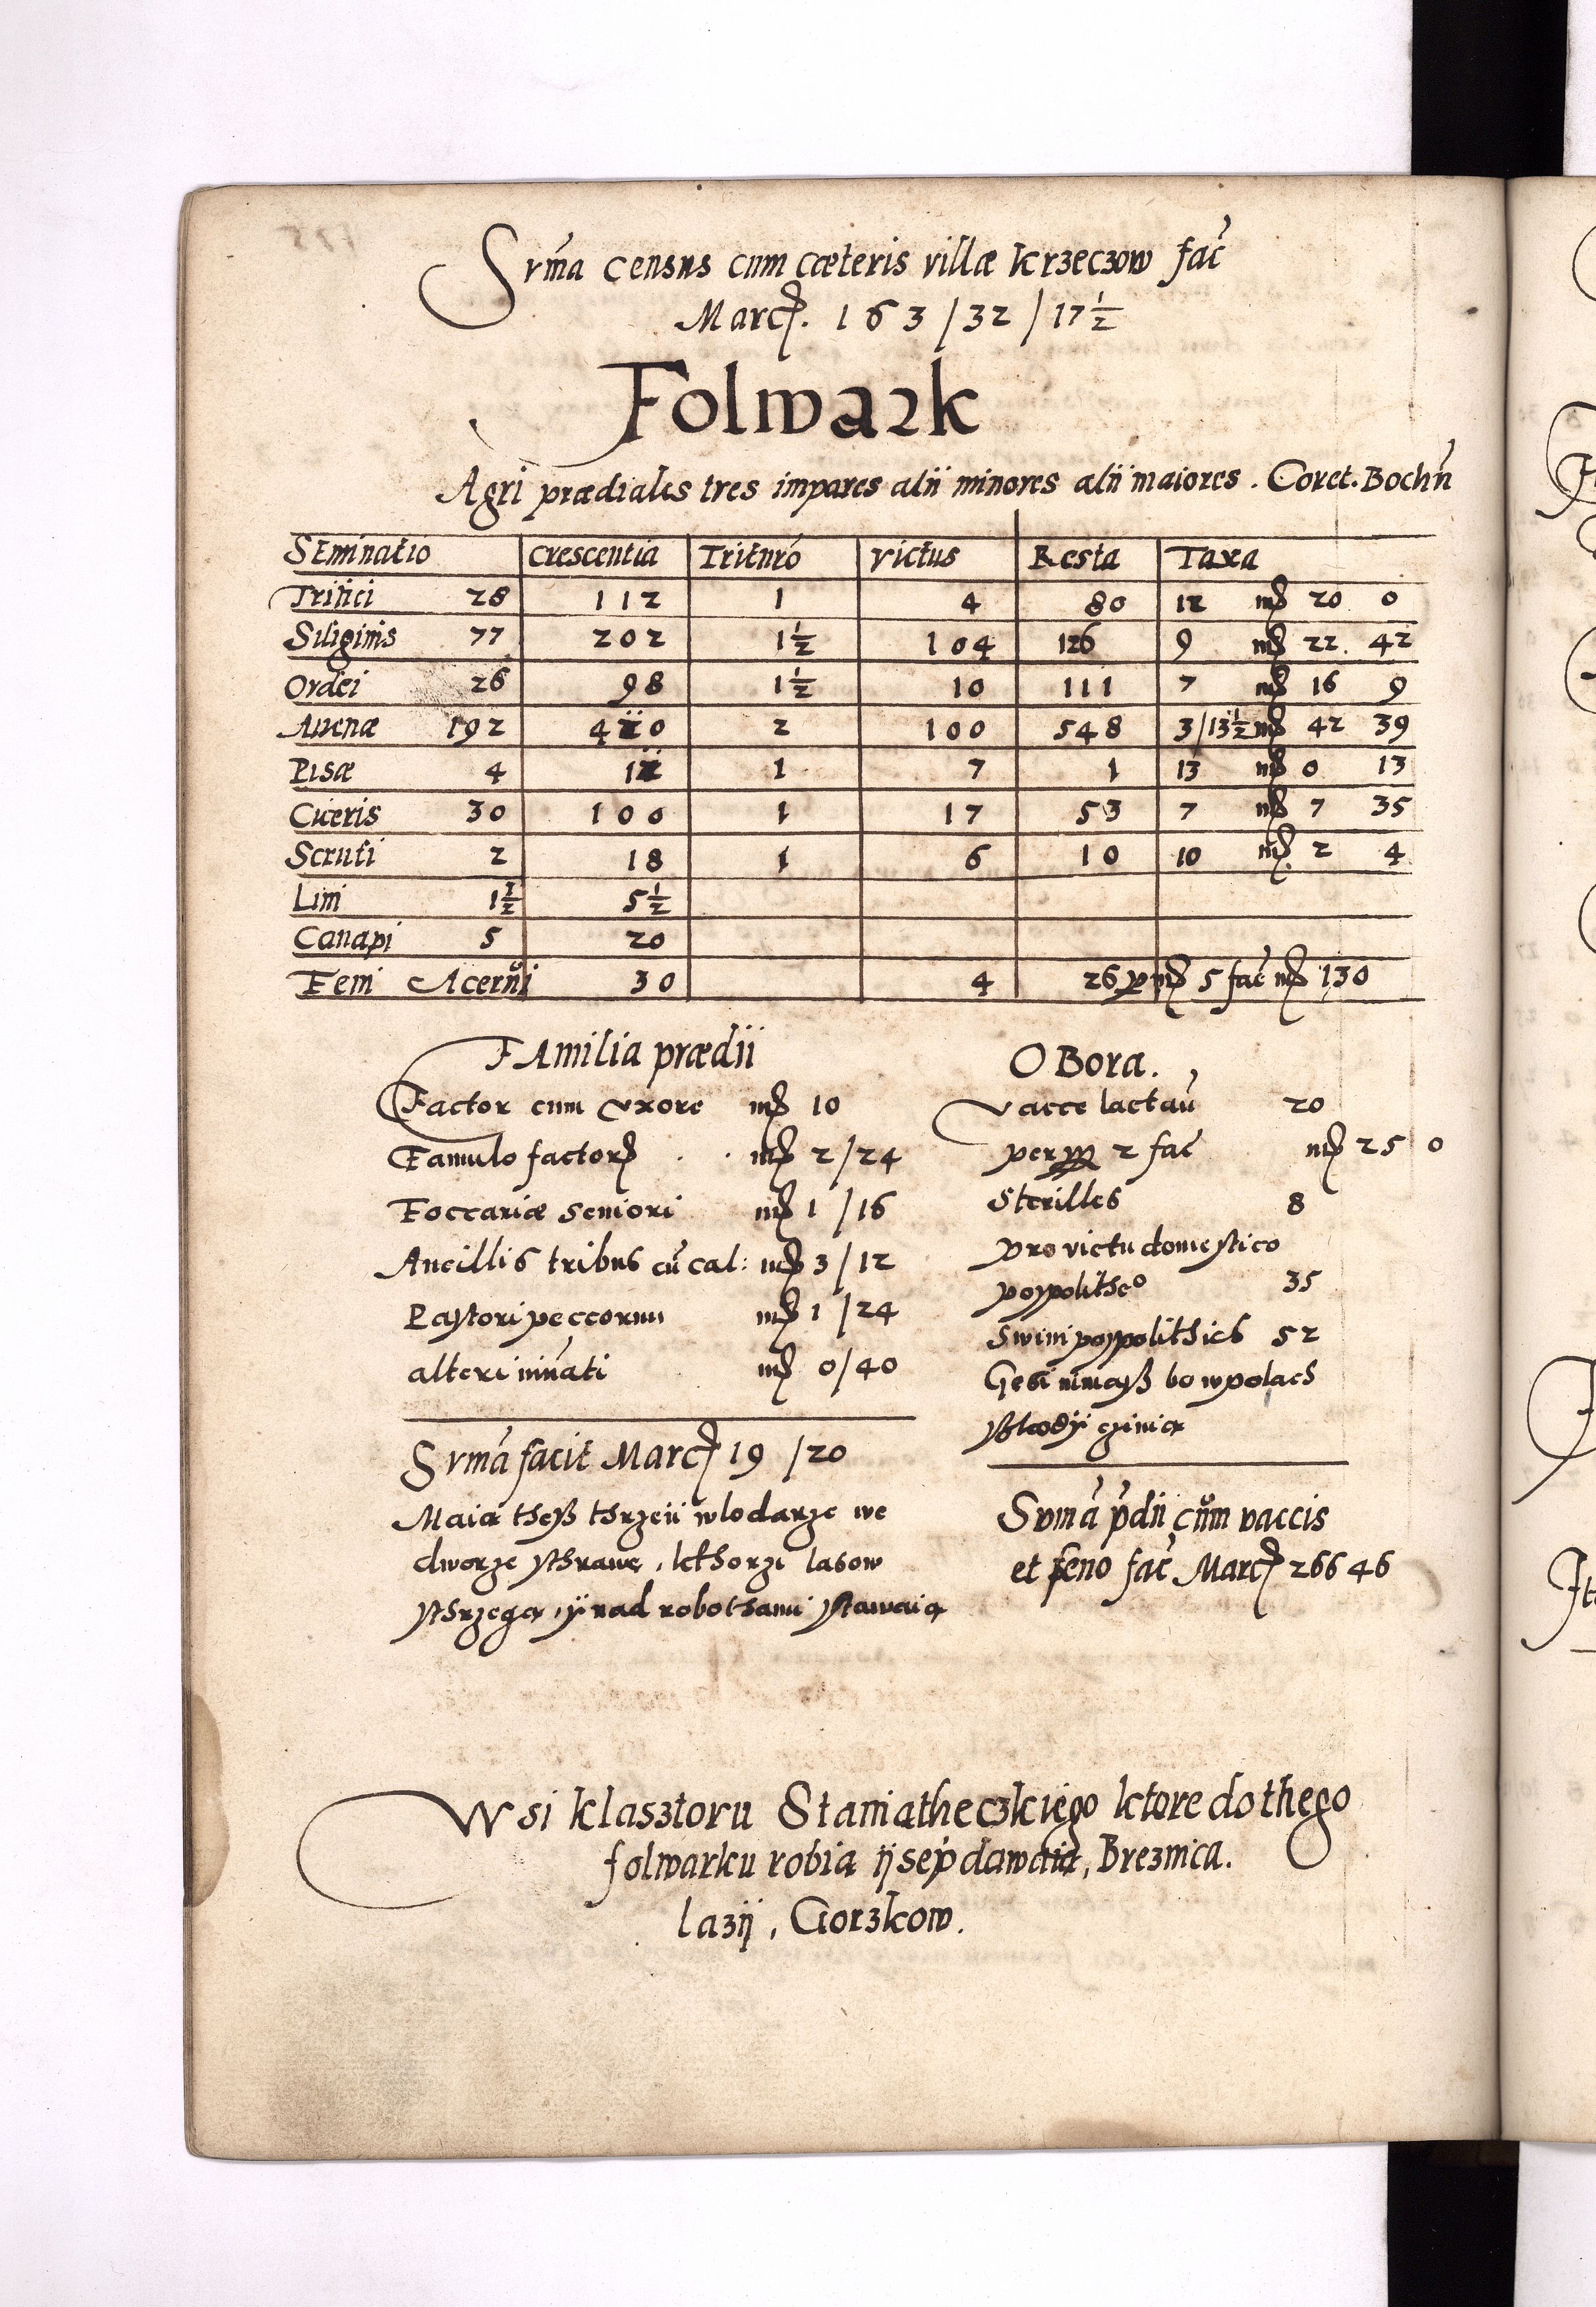 Sum̃a censns cnm cæteris villæ krzeczow fac̃
Marcʒ. 163/32/17½
Folwark
Agri prædiales tres impares alii minores alii maiores. Coret. Bochñ
Seminatio crescentia Tritnrõ victus Resta Taxa
Tritici 28 112 1 4 80 12 mʒ 20 0
Siliginis 77 202 1½ 104 126 9 mʒ 22. 42
Ordei 26 98 1½ 10 111 7 mʒ 16 9
Auenæ 192 2 100 548 3/13½ mʒ 42 39
Pisæ 4 1 7 1 13 mʒ 0 13
Ciceris 30 100 1 17 53 7 mʒ 7 35
Scruti 2 18 1 6 10 10 mʒ 2 4
Lini 1½ 5½
Canapi 5 20
Feni Acerui 30 4 26 p mʒ 5 fac̃ mʒ 130
Familia prædii
Factor cnm vxore mʒ 10
Famulo factorʒ mʒ 2/24
Foccariæ seniori mʒ 1/16
Ancillis tribns cũ cal: mʒ 3/12
Pastori peccornm mʒ 1/24
alteri mʒ 0/40
Sum̃a facit Marcʒ 19/20
Maia thesz thrzeii wlodarze we
dworze sthrawe, kthorzi lasow
sthrzega, ÿ nad robothami stawaia
Obora.
vacce lactañ 20
per 2 fac̃ mʒ 25 0
Sterilles 8
pro victu domestico
pospolithe° 35
Swini pospolithich 52
Gesi nimasz bo wpolach
sskodÿ czinia
Sum̃a p̃dii cũm vaccis
et feno fac̃ Marcʒ 266 46
Wsi klasztoru Staniatheczkiego ktore do thego
folwarku robia ÿ sep dawaia, Breznica.
lazÿ, Gorzkow.